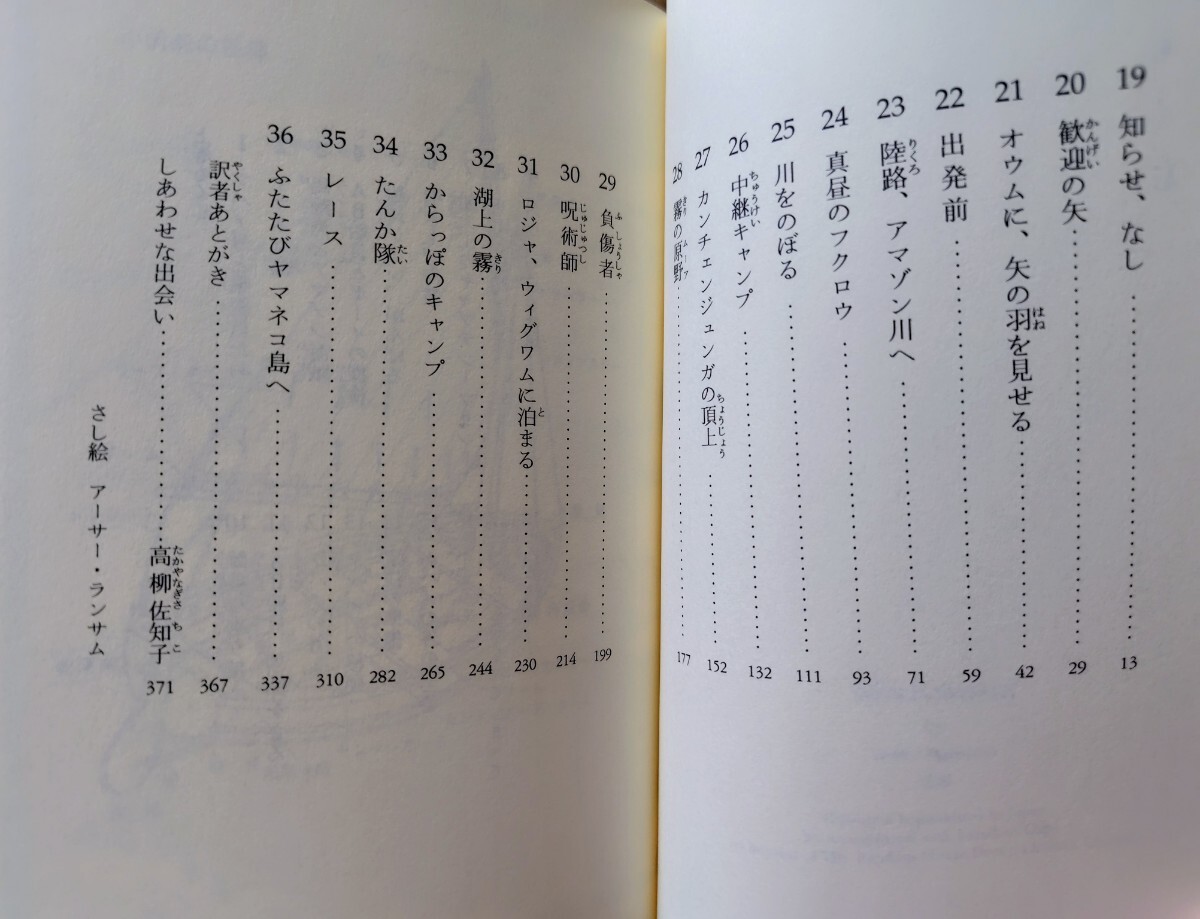 19 知らせ、なし……………………13
20 歓迎の矢……………………29
21 オウムに、矢の羽を見せる……………………42
22 出発前……………………59
23 陸路、アマゾン川へ……………………71
24 真昼のフクロウ……………………93
25 川をのぼる……………………111
26 中継キャンプ……………………132
27 カンチェンジュンガの頂上……………………152
28 霧の原野……………………177
29 負傷者……………………199
30 呪術師……………………214
31 ロジャ、ウィグワムに泊まる……………………230
32 湖上の霧……………………244
33 からっぽのキャンプ……………………265
34 たんか隊……………………282
35 レース……………………310
36 ふたたびヤマネコ島へ……………………337
訳者あとがき……………………367
しあわせな出会い……………………高柳佐知子 371
さし絵 アーサー・ランサム